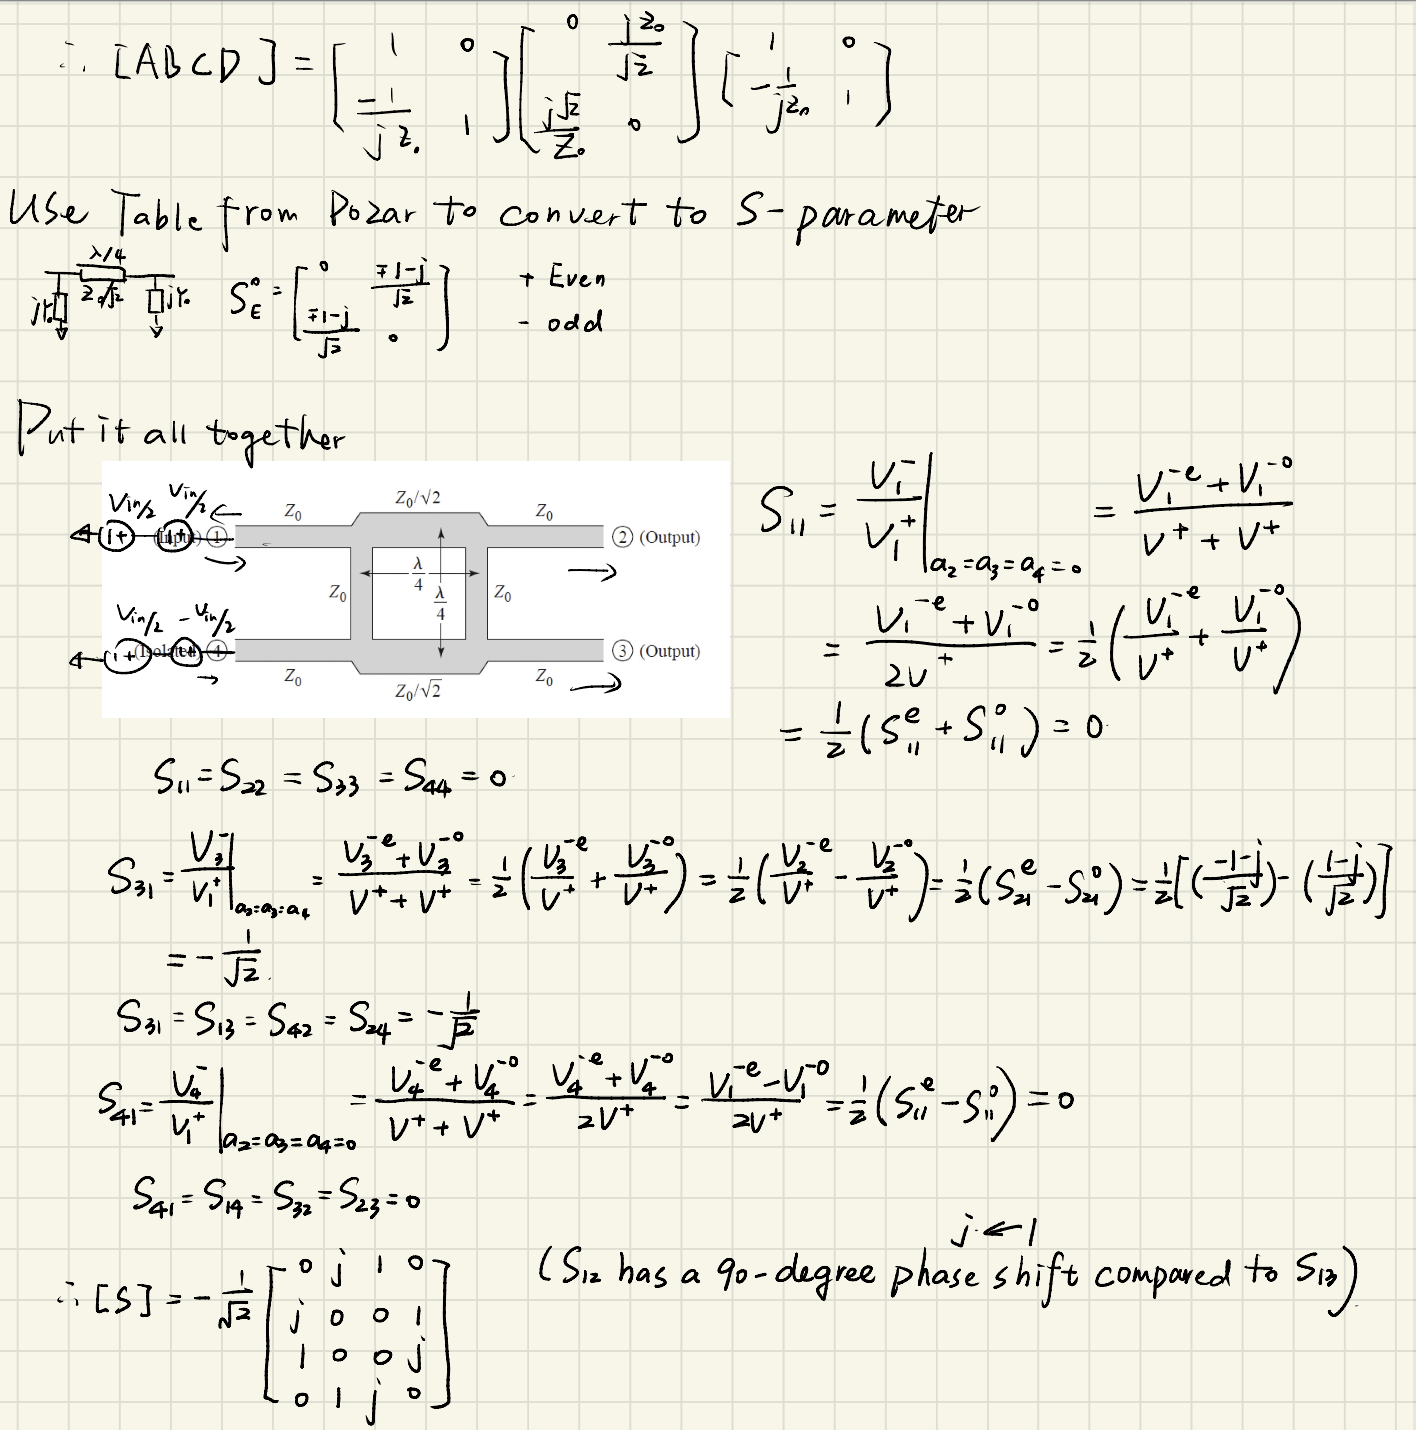 ∴ [ABCD] = [1 0; -1/(jZ₀) 1] [0 jZ₀/√2; j√2/Z₀ 0] [1 0; -1/(jZ₀) 1]
Use Table from Pozar to convert to S-parameter
λ/4
jY₀ Z₀/√2 jY₀
S_E^o = [0 (∓1-j)/√2; (∓1-j)/√2 0]
+ Even
- odd
Put it all together
Vin/2 Vin/2
Z₀ Z₀/√2 Z₀
(Input) ① ② (Output)
λ/4
Z₀ λ/4 Z₀
Vin/2 -Vin/2
(Isolated) ④ ③ (Output)
Z₀ Z₀/√2 Z₀
S₁₁ = V₁⁻/V₁⁺ |a₂=a₃=a₄=0 = (V₁^-e + V₁^-o)/(V⁺ + V⁺)
= (V₁^-e + V₁^-o)/(2V⁺) = 1/2 (V₁^-e/V⁺ + V₁^-o/V⁺)
= 1/2 (S₁₁^e + S₁₁^o) = 0
S₁₁ = S₂₂ = S₃₃ = S₄₄ = 0
S₃₁ = V₃⁻/V₁⁺ |a₂=a₃=a₄ = (V₃^-e + V₃^-o)/(V⁺ + V⁺) = 1/2 (V₃^-e/V⁺ + V₃^-o/V⁺) = 1/2 (V₂^-e/V⁺ - V₂^-o/V⁺) = 1/2 (S₂₁^e - S₂₁^o) = 1/2 [((-1-j)/√2) - ((1-j)/√2)]
= - 1/√2
S₃₁ = S₁₃ = S₄₂ = S₂₄ = - 1/√2
S₄₁ = V₄⁻/V₁⁺ |a₂=a₃=a₄=0 = (V₄^-e + V₄^-o)/(V⁺ + V⁺) = (V₄^-e + V₄^-o)/(2V⁺) = (V₁^-e - V₁^-o)/(2V⁺) = 1/2 (S₁₁^e - S₁₁^o) = 0
S₄₁ = S₁₄ = S₃₂ = S₂₃ = 0
j ← 1
∴ [S] = - 1/√2 [0 j 1 0; j 0 0 1; 1 0 0 j; 0 1 j 0] (S₁₂ has a 90-degree phase shift compared to S₁₃)